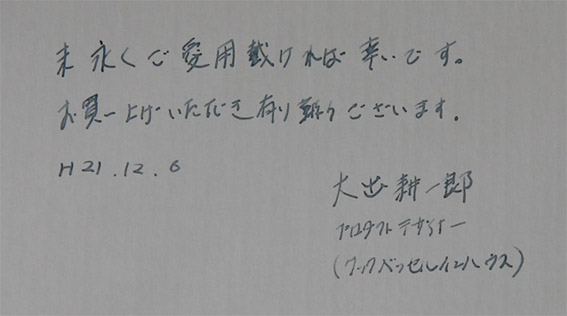 末永くご愛用戴ければ幸いです。
お買い上げいただき有り難うございます。
H21.12.6
大出耕一郎
プロダクトデザイナー
(ワックバッセルインハウス)